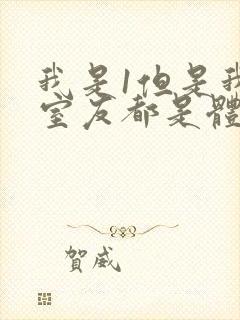 我是1但是我
室友都是體
賀威